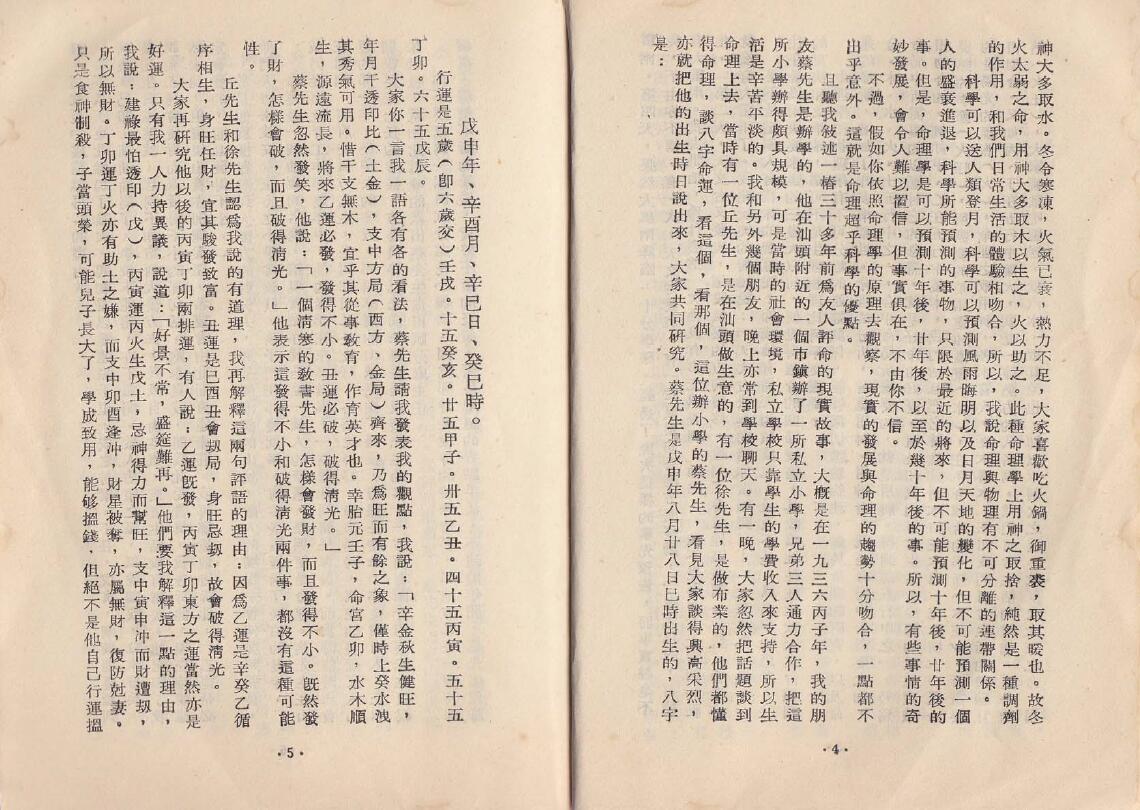 神大多取水。冬令寒凍，火氣已衰，熱力不足，大家喜歡吃火鍋，御重裘，取其暖也。故冬
火太弱之命，用神大多取木以生之，火以助之。此種命理學上用神之取捨，純然是一種調劑
的作用，和我們日常生活的體驗相吻合，所以，我說命理與物理有不可分離的連帶關係。
科學可以送人類登月，科學可以預測風雨晦明以及日月天地的變化，但不可能預測一個
人的盛衰進退，科學所能預測的事物，只限於最近的將來，但不可能預測十年後，廿年後的
事。但是，命理學是可以預測十年後，廿年後，以至於幾十年後的事。所以，有些事情的奇
妙發展，會令人難以置信，但事實俱在，不由你不信。
不過，假如你依照命理學的原理去觀察，現實的發展與命理的趨勢十分吻合，一點都不
出乎意外。這就是命理超乎科學的優點。
且聽我敘述一樁三十多年前爲友人評命的現實故事，大概是在一九三六丙子年，我的朋
友蔡先生是辦學的，他在汕頭附近的一個市鎭辦了一所私立小學，兄弟三人通力合作，把這
所小學辦得頗具規模，可是當時的社會環境，私立學校只靠學生的學費收入來支持，所以生
活是辛苦平淡的。我和另外幾個朋友，晚上亦常到學校聊天。有一晚，大家忽然把話題談到
命理上去，當時有一位丘先生，是在汕頭做生意的，有一位徐先生，是做布業的，他們都懂
得命理，談八字命運，看這個，看那個，這位辦小學的蔡先生，看見大家談得興高采烈，
亦就把他的出生時日說出來，大家共同研究。蔡先生是戊申年八月廿八日巳時出生的，八字
是：
·4·
戊申年、辛酉月、辛巳日、癸巳時。
行運是五歲（卽六歲交）壬戌。十五癸亥。廿五甲子。卅五乙丑。四十五丙寅。五十五
丁卯。六十五戊辰。
大家你一言我一語各有各的看法，蔡先生請我發表我的觀點，我說：「辛金秋生健旺，
年月干透印比（土金），支中方局（西方、金局）齊來，乃爲旺而有餘之象，僅時上癸水洩
其秀氣可用。惜干支無木，宜乎其從事敎育，作育英才也。幸胎元壬子，命宮乙卯，水木順
生，源遠流長，將來乙運必發，發得不小。丑運必破，破得淸光。」
蔡先生忽然發笑，他說：「一個淸寒的敎書先生，怎樣會發財，而且發得不小。旣然發
了財，怎樣會破，而且破得淸光。」他表示這發得不小和破得淸光兩件事，都沒有這種可能
性。
丘先生和徐先生認爲我說的有道理，我再解釋這兩句評語的理由：因爲乙運是辛癸乙循
序相生，身旺任財，宜其駿發致富。丑運是巳酉丑會刼局，身旺忌刼，故會破得淸光。
大家再研究他以後的丙寅丁卯兩排運，有人說：乙運旣發，丙寅丁卯東方之運當然亦是
好運。只有我一人力持異議，說道：「好景不常，盛筵難再。」他們要我解釋這一點的理由，
我說：建祿最怕透印（戊），丙寅運丙火生戊土，忌神得力而幫旺，支中寅申冲而財遭刼，
所以無財。丁卯運丁火亦有助土之嫌，而支中卯酉逢沖，財星被奪，亦屬無財，復防尅妻。
只是食神制殺，子當頭榮，可能兒子長大了，學成致用，能够搵錢，但絕不是他自己行運搵
·5·